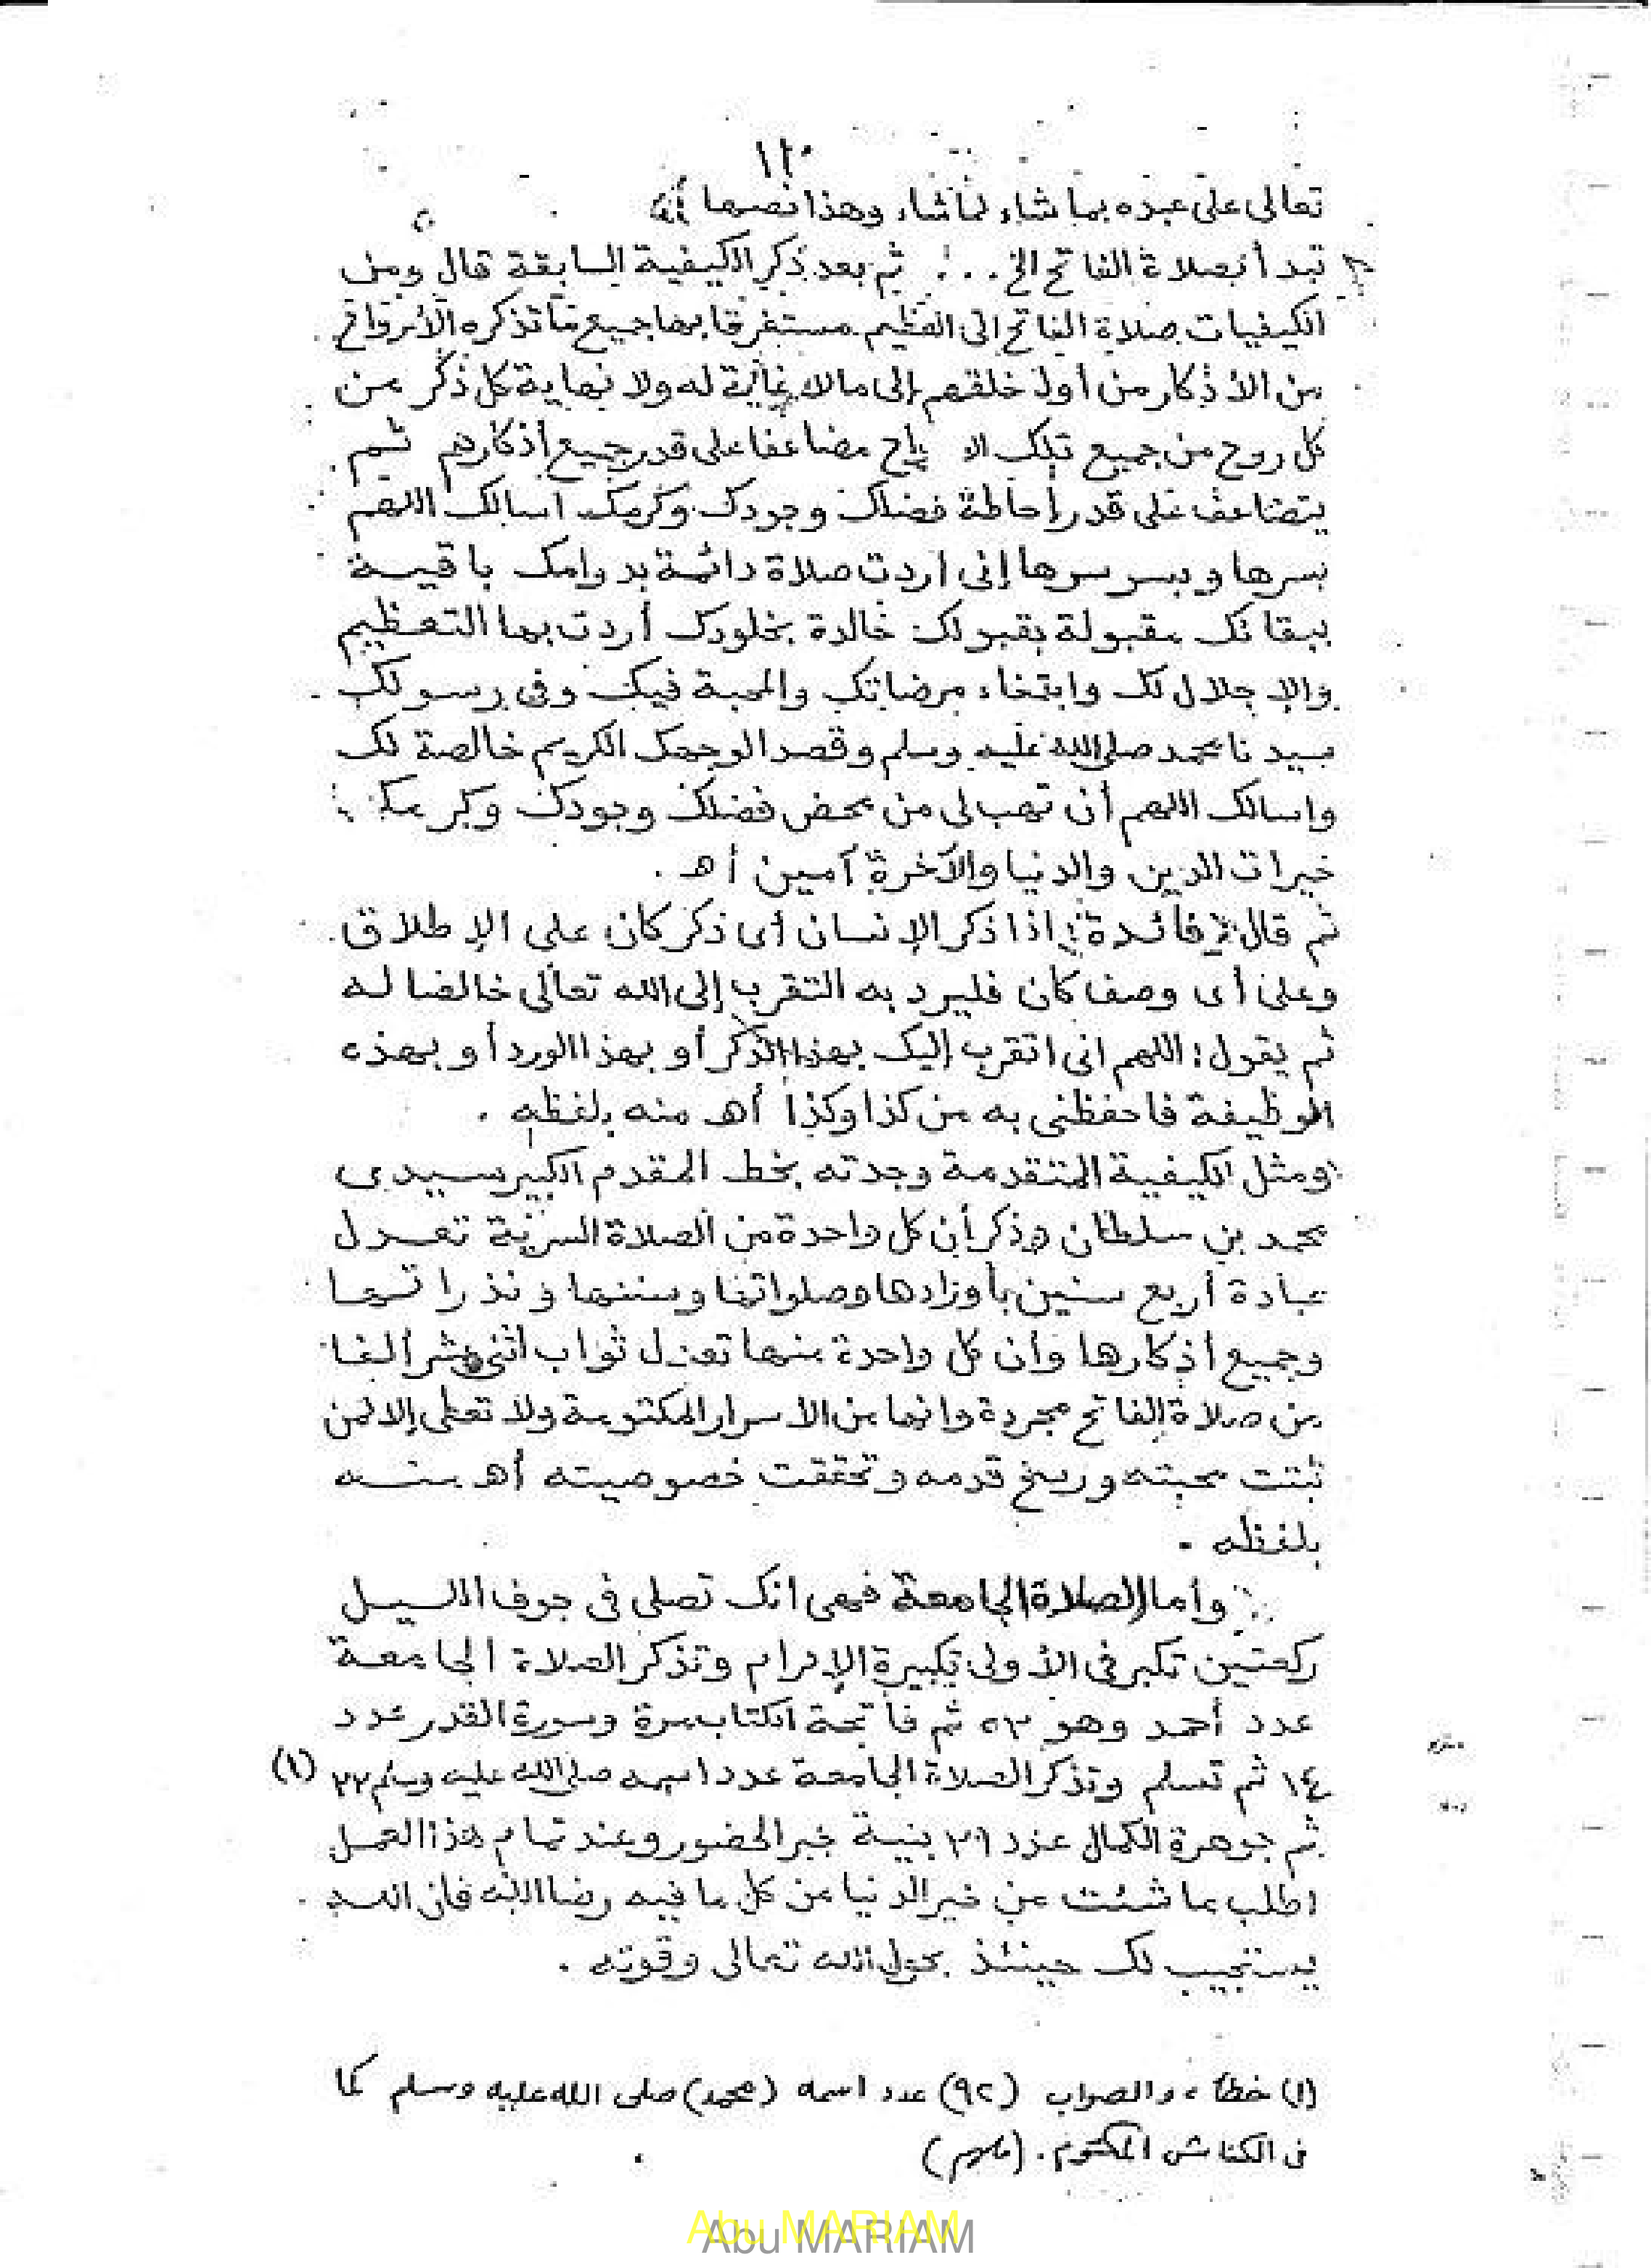 ١١٠
تعالى على عبده بما شاء لما شاء وهذا نصها
تبدأ بصلاة الفاتح الخ ... ثم بعد ذكر الكيفية السابقة قال ومن
الكيفيات صلاة الفاتح الى العظيم مستغرقا بها جميع ما تذكره الأرواح
من الأذكار من أول خلقهم إلى مالا غاية له ولا نهاية كل ذكر من
كل روح من جميع تلك الا واح مضاعفا على قدر جميع أذكارهم ثم
يتضاعف على قدر إحاطة فضلك وجودك وكرمك اسالك اللهم
بسرها وبسر سرها إنى اردت صلاة دائمة بدوامك باقيـة
ببقائك مقبولة بقبولك خالدة بخلودك أردت بها التعظيم
والإجلال لك وابتغاء مرضاتك والمحبة فيك وفى رسولك
سيدنا محمد صلى الله عليه وسلم وقصدا لوجهك الكريم خالصة لك
واسالك اللهم أن تهب لى من محض فضلك وجودك وكرمك
خيرات الدين والدنيا والآخرة آمين أهـ .
ثم قال : فائدة : اذا ذكر الإنسان أى ذكر كان على الإطلاق
وعلى أى وصف كان فليرد به التقرب إلى الله تعالى خالصا له
ثم يقول : اللهم انى اتقرب إليك بهذا الذكر أو بهذا الورد أو بهذه
الوظيفة فاحفظنى به من كذا وكذا أهـ منه بلفظه .
ومثل الكيفية المتقدمة وجدته بخط المقدم الكبير سيدى
محمد بن سلطان وذكر أن كل واحدة من الصلاة السرية تعدل
عبادة أربع سنين بأورادها وصلواتها وسننها و نذراتها
وجميع أذكارها وأن كل واحدة منها تعدل ثواب اثنى عشر ألفا
من صلاة الفاتح مجردة وانها من الاسرار المكتومة ولا تعطى إلا لمن
ثبتت محبته ورسخ قدمه وتحققت خصوصيته أهـ منه
بلفظه .
وأما الصلاة الجامعة فهى انك تصلى فى جوف الليل
ركعتين تكبر فى الأولى تكبيرة الإحرام وتذكر الصلاة الجامعة
عدد أحمد وهو ٥٣ ثم فاتحة الكتاب مرة وسورة القدر عدد
١٤ ثم تسلم وتذكر الصلاة الجامعة عدد اسمه صلى الله عليه وسلم ٢٢ (١)
ثم جوهرة الكمال عدد ٢١ بنية جبر الحضور وعند تمام هذا العمل
اطلب ما شئت من خير الدنيا من كل ما فيه رضا الله فان الله
يستجيب لك حينئذ بحول الله تعالى وقوته .
(١) خطأ ، والصواب (٩٢) عدد اسمه (محمد) صلى الله عليه وسلم كما
فى الكناش المكتوم .
Abu MARIAM
Abu MARIAM